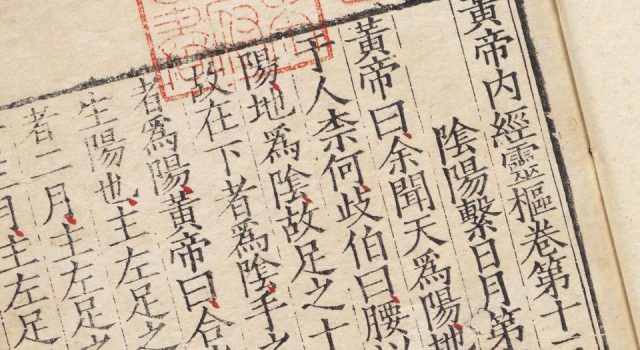 黃帝内經靈樞卷第十
陰陽繫日月第
黃帝曰余聞天爲陽地
于人柰何歧伯曰腰以
陽地爲陰故足之十
故在下者爲陰手之
者爲陽黃帝曰合
生陽也主左足之
者二月主左足之
三月主左足